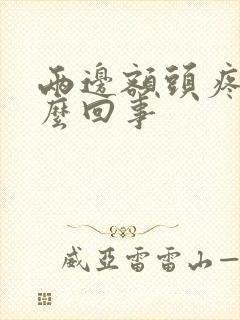 兩邊額頭疼
麼回事
威亞雷雷山一